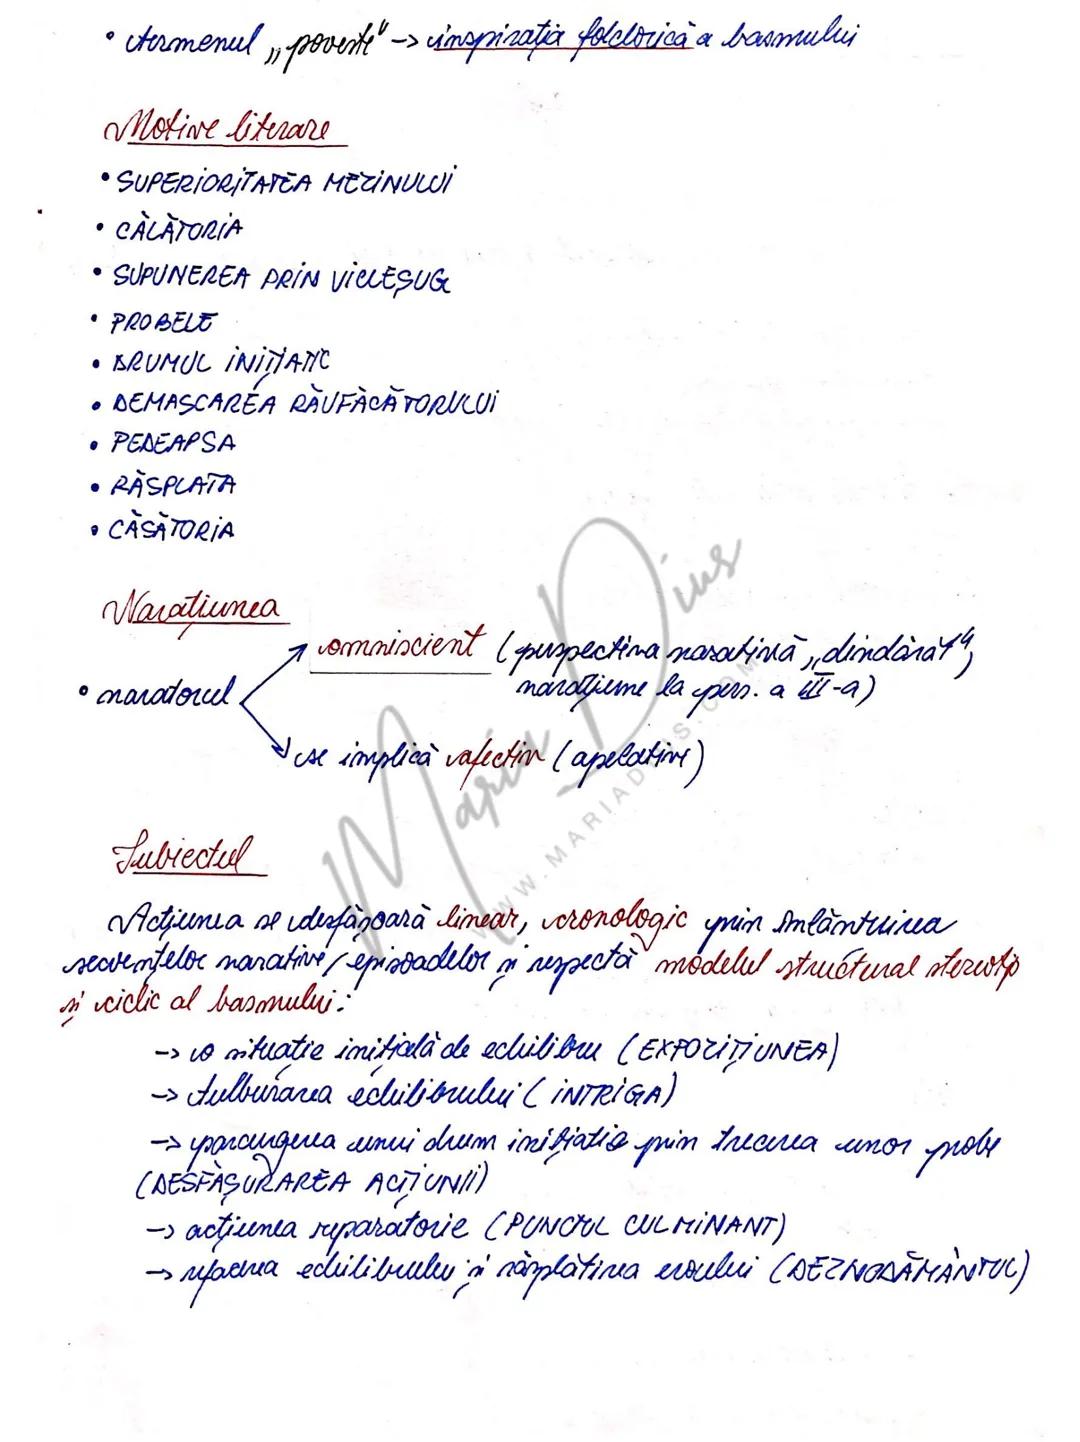 • termenul „poveste" -> inspirația folclorică a basmului
Motive literare
• SUPERIORITATEA MEZINULUI
• CĂLĂTORIA
• SUPUNEREA PRIN VICLEȘUG
• PROBELE
• DRUMUL INIȚIATIC
• DEMASCAREA RĂUFĂCĂTORULUI
• PEDEAPSA
• RĂSPLATA
• CĂSĂTORIA
Narațiunea
omniscient (perspectiva narativă „dindărăt",
narațiune la pers. a III-a)
• naratorul
se implică afectiv (apelative)
Subiectul
Acțiunea se desfășoară linear, cronologic prin înlănțuirea
secvențelor narative/episoadelor și respectă modelul structural stereotip
și ciclic al basmului:
-> o situație inițială de echilibru (EXPOZIȚIUNEA)
-> tulburarea echilibrului (INTRIGA)
-> parcurgerea unui drum inițiatic prin trecerea unor probe
(DESFĂȘURAREA ACȚIUNII)
-> acțiunea reparatorie (PUNCTUL CULMINANT)
-> refacerea echilibrului și răsplătirea eroului (DEZNODĂMÂNTUL)
Maria Dius
WWW.MARIADIUS.COM